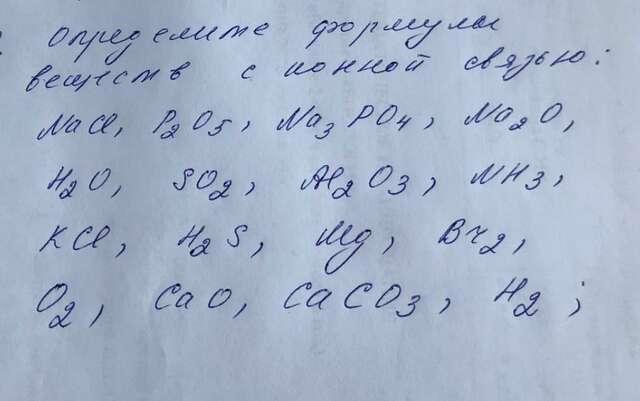 определите формулы
веществ с ионной связью:
NaCl, P2O5, Na3PO4, Na2O,
H2O, SO2, Al2O3, NH3,
KCl, H2S, Mg, Br2,
O2, CaO, CaCO3, H2;